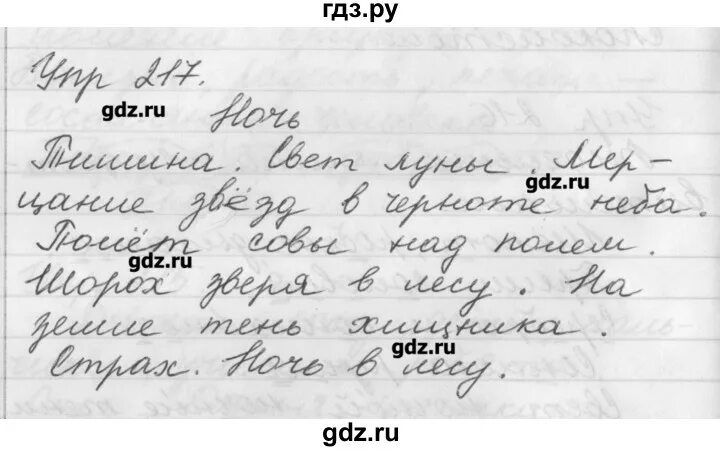 гдз.ру
Упр 217.
gdz.ru
Ночь
Тишина. Свет луны. Мер-
gdz.ru
цание звёзд в черноте неба.
Полёт совы над полем.
gdz.ru
Шорох зверя в лесу. На
земле тень хищника.
gdz.ru
Страх. Ночь в лесу.
gdz.ru